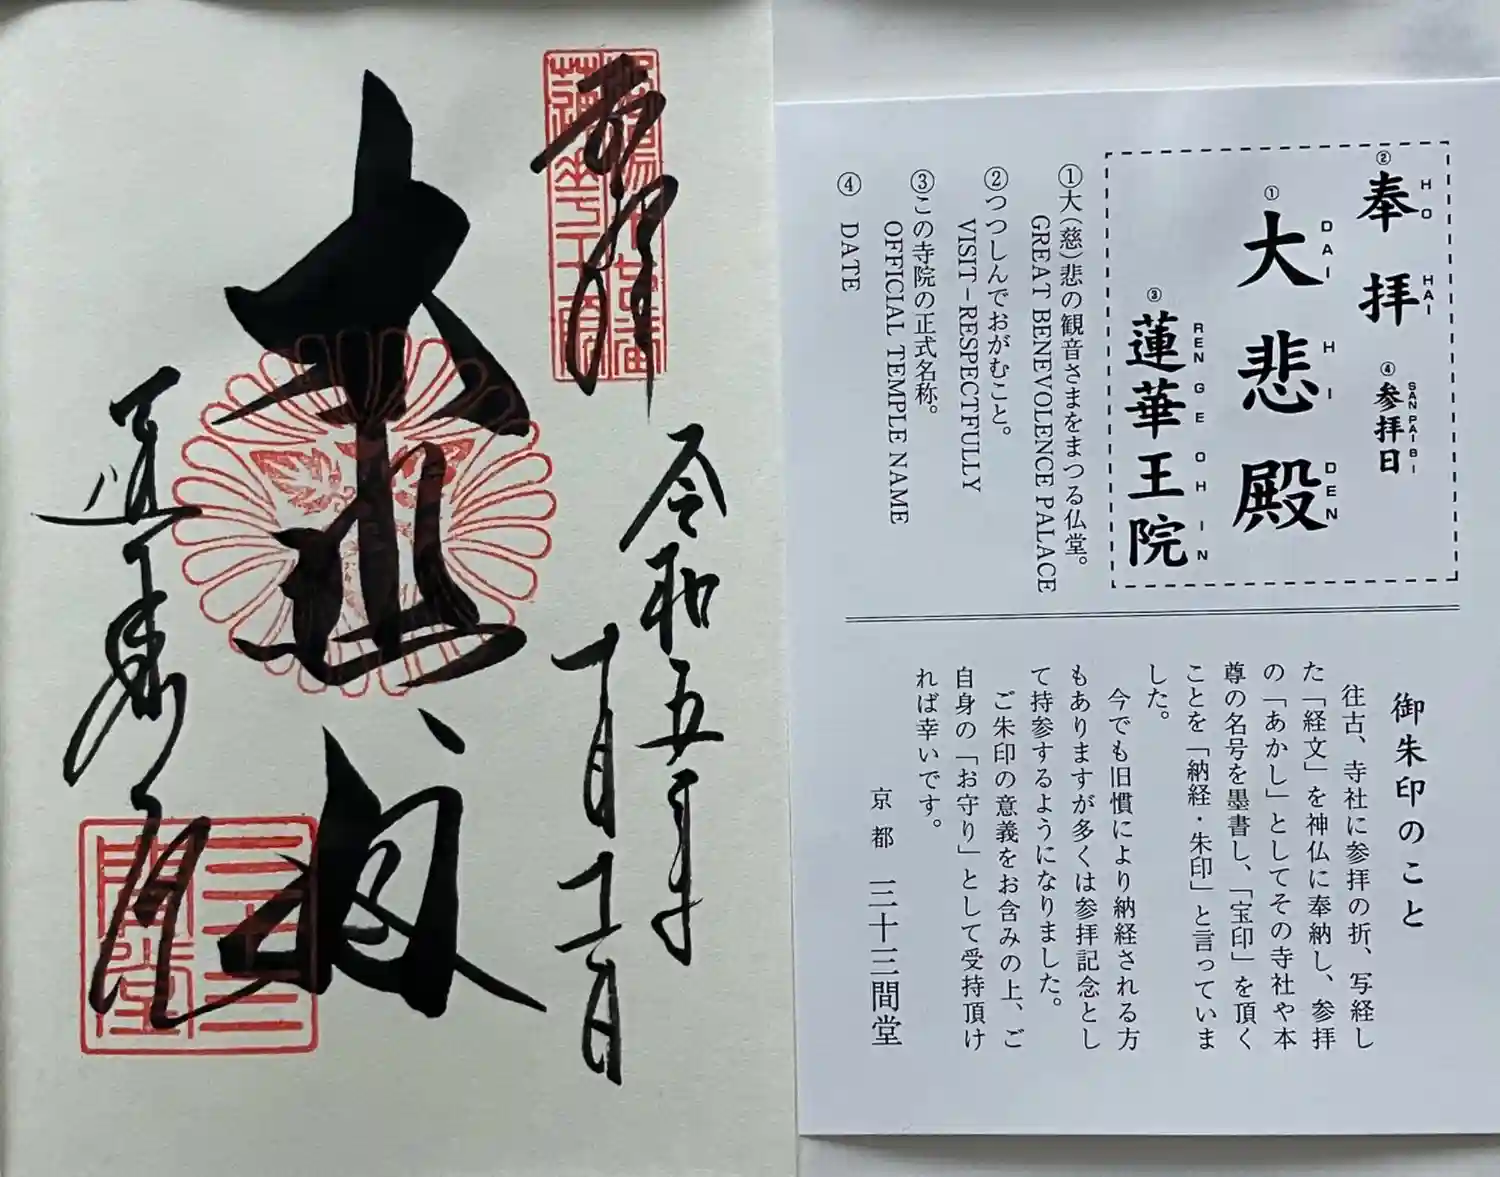 奉拝
令和五年
大悲殿
蓮華王院
三十三
間堂
②奉拝
HO HAI
④参拝日
SAN PAI BI
①大悲殿
DAI HI DEN
③蓮華王院
REN GE OH IN
①大(慈)悲の観音さまをまつる仏堂。
GREAT BENEVOLENCE PALACE
②つつしんでおがむこと。
VISIT－RESPECTFULLY
③この寺院の正式名称。
OFFICIAL TEMPLE NAME
④ DATE
御朱印のこと
往古、寺社に参拝の折、写経し
た「経文」を神仏に奉納し、参拝
の「あかし」としてその寺社や本
尊の名号を墨書し、「宝印」を頂く
ことを「納経・朱印」と言っていま
した。
今でも旧慣により納経される方
もありますが多くは参拝記念とし
て持参するようになりました。
ご朱印の意義をお含みの上、ご
自身の「お守り」として受持頂け
れば幸いです。
京都 三十三間堂